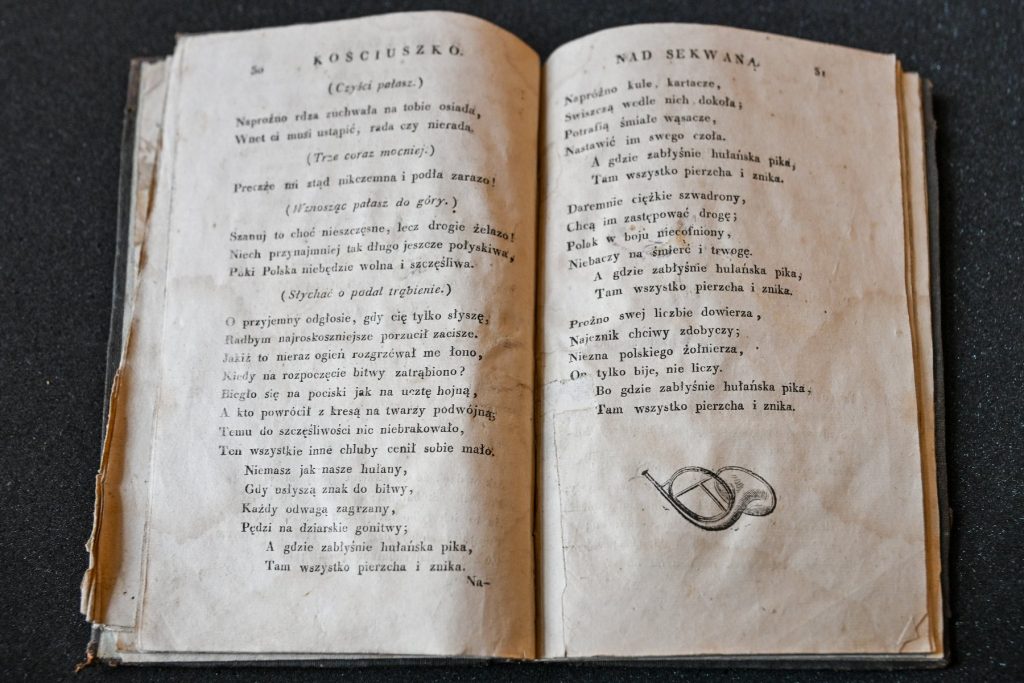 30
KOŚCIUSZKO.
(Czyści pałasz.)
Napróżno rdza zuchwała na tobie osiada,
Wnet ci musi ustąpić, rada czy nierada.
(Trze coraz mocniej.)
Preczże mi ztąd nikczemna i podła zarazo!
(Wznosząc pałasz do góry.)
Szanuj to choć nieszczęsne, lecz drogie żelazo!
Niech przynajmniej tak długo jeszcze połyskiwa,
Póki Polska niebędzie wolna i szczęśliwa.
(Słychać o podal trąbienie.)
O przyjemny odgłosie, gdy cię tylko słyszę,
Radbym najroskoszniejsze porzucił zacisze.
Jakiż to nieraz ogień rozgrzéwał me łono,
Kiedy na rozpoczęcie bitwy zatrąbiono?
Biegło się na pociski jak na ucztę hojną,
A kto powrócił z kresą na twarzy podwójną,
Temu do szczęśliwości nic niebrakowało,
Ten wszystkie inne chluby cenił sobie mało.
Niemasz jak nasze hulany,
Gdy usłyszą znak do bitwy,
Każdy odwagą zagrzany,
Pędzi na dziarskie gonitwy;
A gdzie zabłyśnie hułańska pika,
Tam wszystko pierzcha i znika.
Na-
NAD SEKWANĄ.
31
Napróżno kule, kartacze,
Swiszczą wedle nich dokoła;
Potrafią śmiałe wąsacze,
Nastawić im swego czoła.
A gdzie zabłyśnie hułańska pika,
Tam wszystko pierzcha i znika.
Daremnie ciężkie szwadrony,
Chcą im zastępować drogę;
Polak w boju niecofniony,
Niebaczy na śmierć i trwogę.
A gdzie zabłyśnie hułańska pika,
Tam wszystko pierzcha i znika.
Prożno swej liczbie dowierza,
Najeznik chciwy zdobyczy;
Niezna polskiego żołnierza,
On tylko bije, nie liczy.
Bo gdzie zabłyśnie hułańska pika,
Tam wszystko pierzcha i znika.